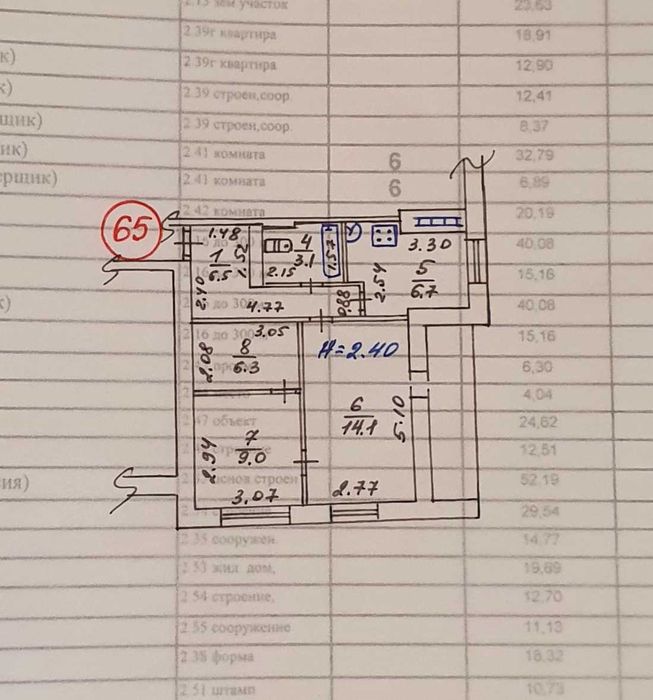 2 13 зем участок 23,63
2 39г квартира 18,91
к) 2 39г квартира 12,90
к) 2 39 строен,соор. 12,41
щик) 2 39 строен,соор. 8,37
ик) 2 41 комната 6 32,79
ерщик) 2 41 комната 6 6,89
2 42 комната 20,19
65
1.48
40,08
1
6.5
1.52
4
3.1
2.15
1.57
3.30
5
6.7
2.54
15,16
2.40
4.77
0.88
к) до 300 40,08
3.05
2 16 до 300 15,16
2.08
8
6.3
H=2.40
6,30
4,04
6
14.1
5.10
47 объект 24,62
7
9.0
12,51
2.94
ия) основ строен 52,19
3.07
2.77
29,54
2 35 сооружен. 14,77
2 53 жил дом, 19,69
2 54 строение, 12,70
2 55 сооружение 11,13
2 38 форма 18,32
2 51 штамп 10,73